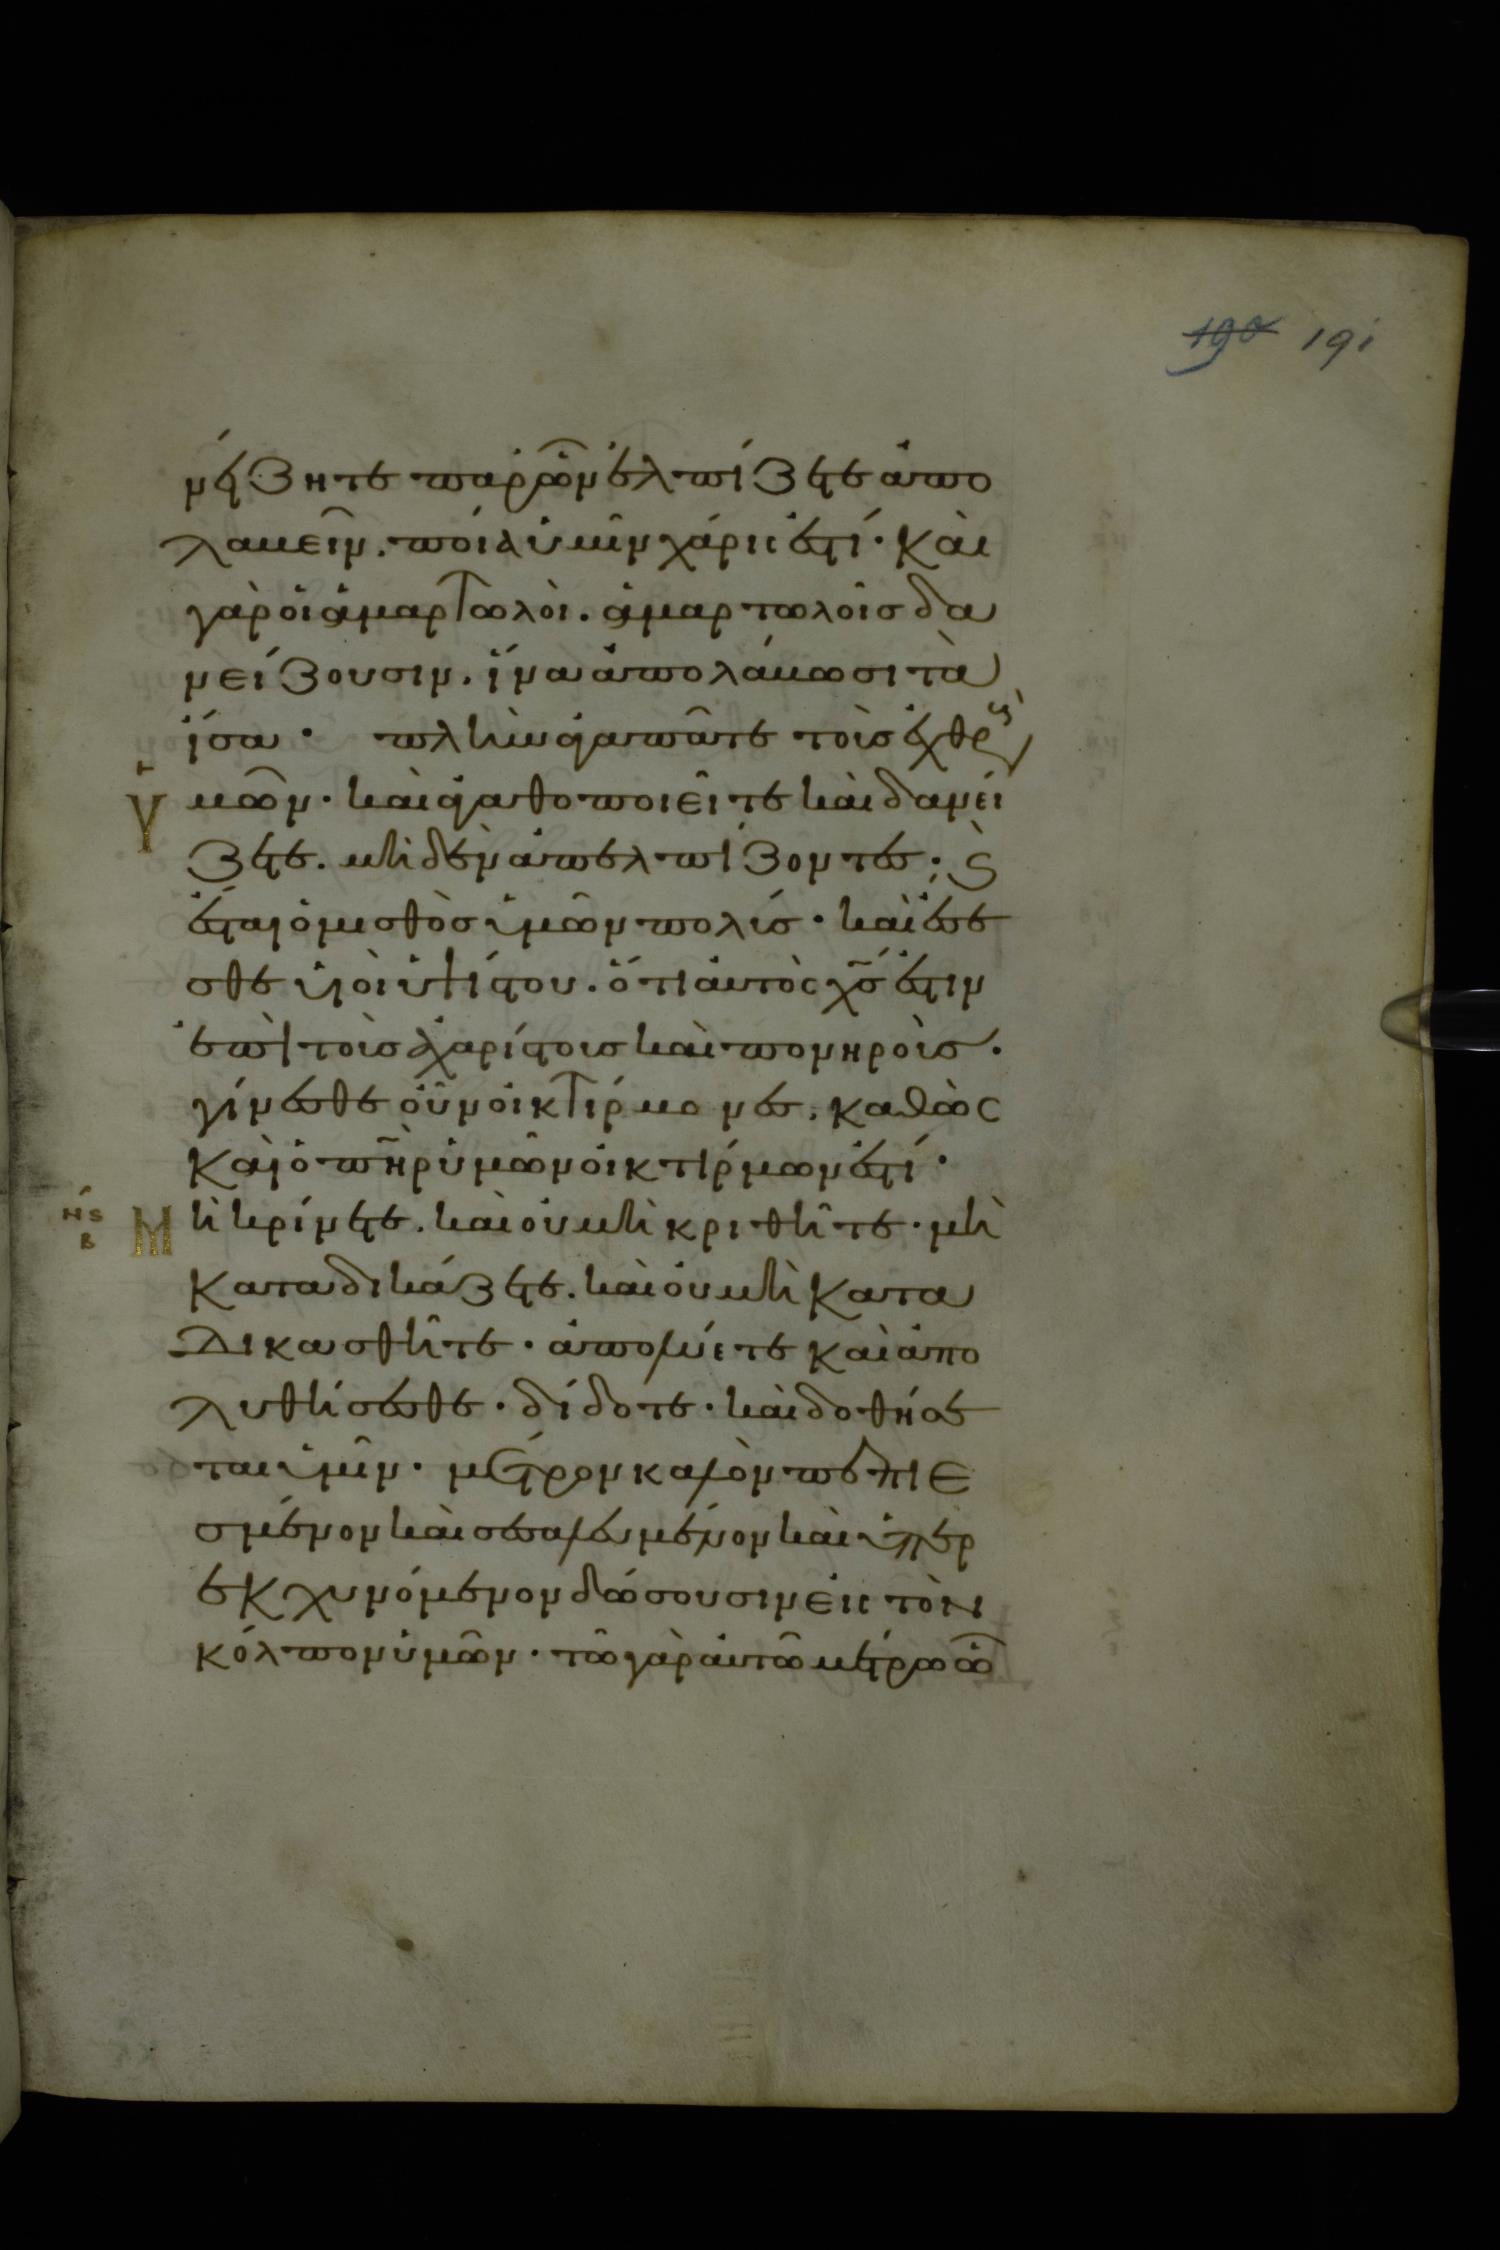 190 191
νείζητε παρ ὧν ἐλπίζετε ἀπο
λαβεῖν. ποία ὑμῖν χάρις ἐστί· καὶ
γὰρ οἱ ἁμαρτωλοὶ. ἁμαρτωλοῖς δα
νείζουσιν. ἵνα ἀπολάβωσι τὰ
ἴσα· πλὴν ἀγαπᾶτε τοὺς ἐχθρ
Ὑμῶν· καὶ ἀγαθοποιεῖτε καὶ δανεί
ζετε. μηδὲν ἀπελπίζοντες· ϗ
ἔσται ὁ μισθὸς ὑμῶν πολύς· καὶ ἔσε
σθε υἱοὶ ὑψίστου. ὅτι αὐτὸς χς ἐστιν
ἐπὶ τοὺς ἀχαρίστους καὶ πονηρούς·
γίνεσθε οὖν οἰκτίρμονες. καθὼς
καὶ ὁ πηρ ὑμῶν οἰκτίρμων ἐστί·
ΝϚ Β Μὴ κρίνετε. καὶ οὐ μὴ κριθῆτε· μὴ
καταδικάζετε. καὶ οὐ μὴ κατα
δικασθῆτε· ἀπολύετε καὶ ἀπο
λυθήσεσθε· δίδοτε· καὶ δοθήσε
ται ὑμῖν· μέτρον καλὸν πεπιε
σμένον καὶ σεσαλευμένον καὶ ὑπερ
εκχυνόμενον δώσουσιν εἰς τὸν
κόλπον ὑμῶν· τῶ γὰρ αὐτῶ μέτρω ὧ